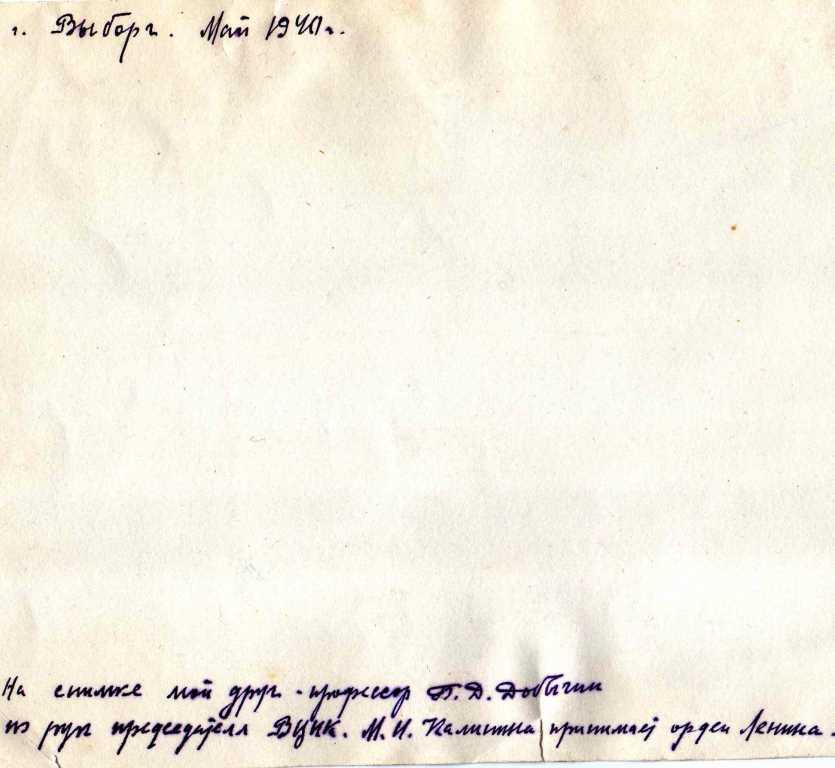 г. Выборг. Май 1940г.
На снимке мой друг - профессор Б. Д. Добычин
из рук председателя ВЦИК. М. И. Калинина принимает орден Ленина.